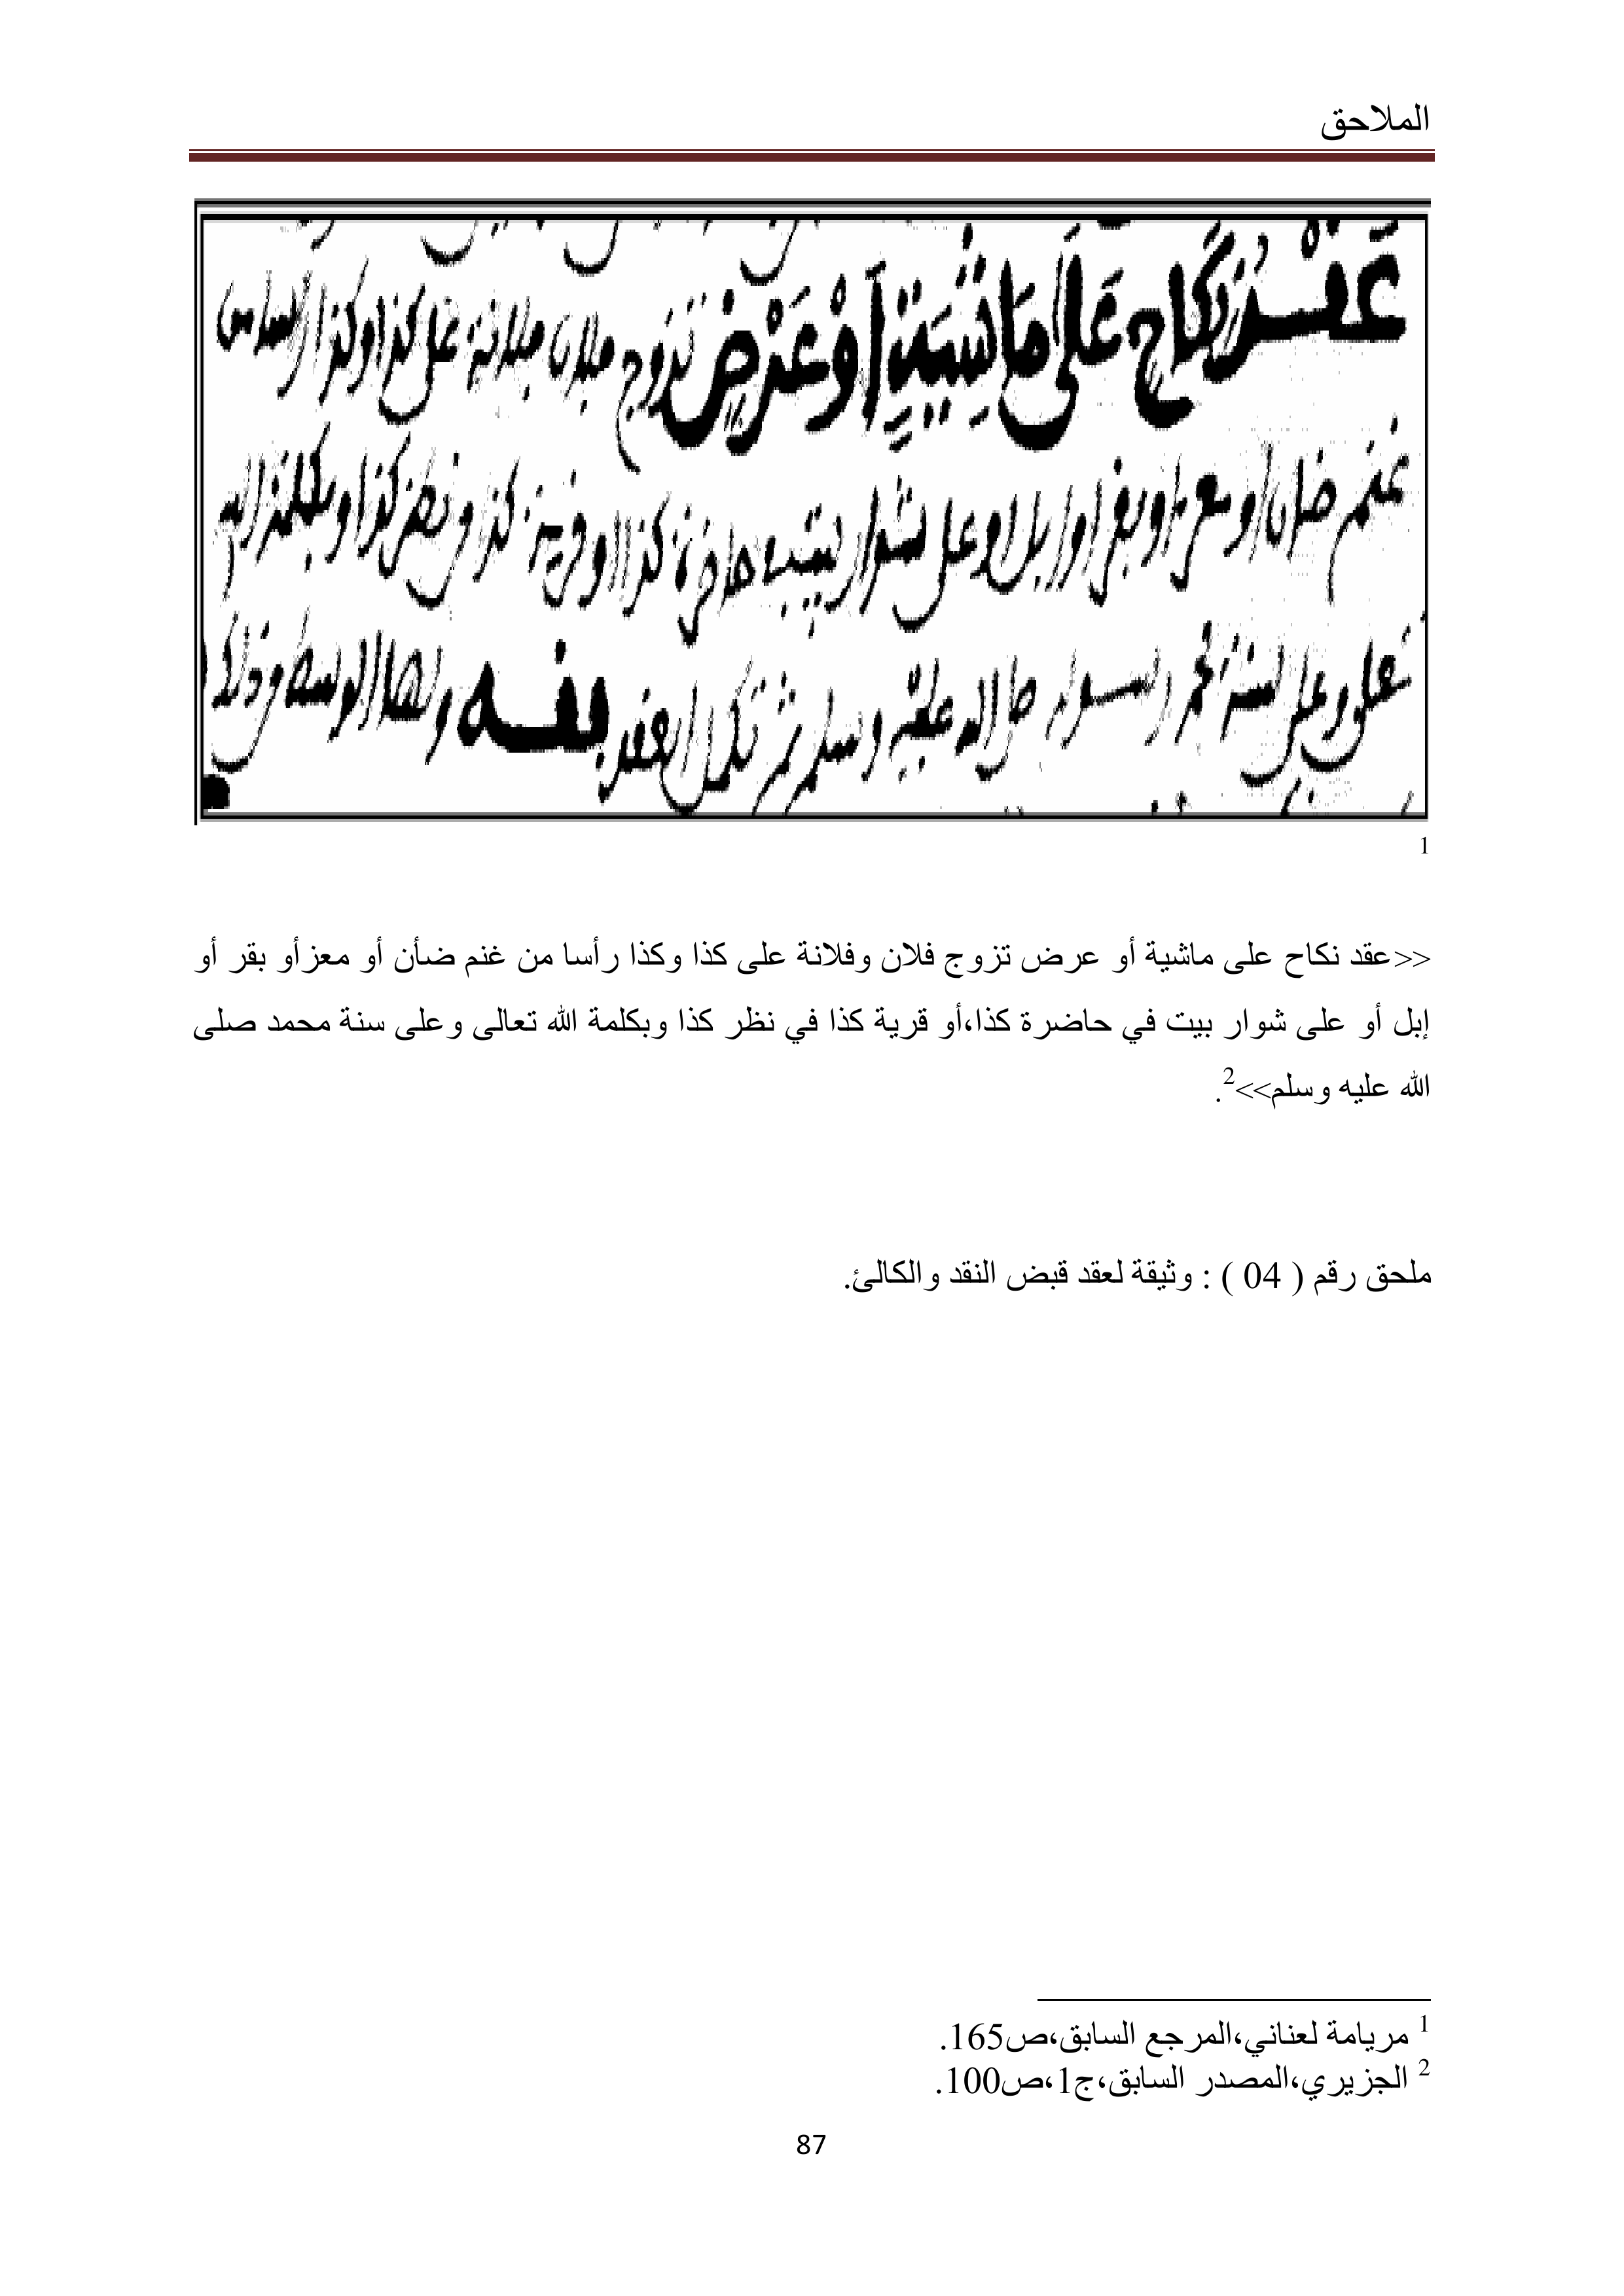 الملاحق
عقد نكاح على ماشية أو عرض تزوج فلان فلانة على كذا وكذا رأسا من
غنم ضان او معز او بقر او ابل او على شوار بيت بحاضرة كذا او قرية كذا ونظر كذا وبكلمة الله
تعلى وعلى سنة محمد رسوله صلى الله عليه وسلم ثم تكمل العقد فقه ولها الوسط من ذلك
1
<<عقد نكاح على ماشية أو عرض تزوج فلان وفلانة على كذا وكذا رأسا من غنم ضأن أو معزأو بقر أو
إبل أو على شوار بيت في حاضرة كذا،أو قرية كذا في نظر كذا وبكلمة الله تعالى وعلى سنة محمد صلى
الله عليه وسلم>>2.
ملحق رقم ( 04 ) : وثيقة لعقد قبض النقد والكالئ.
1 مريامة لعناني،المرجع السابق،ص165.
2 الجزيري،المصدر السابق،ج1،ص100.
87